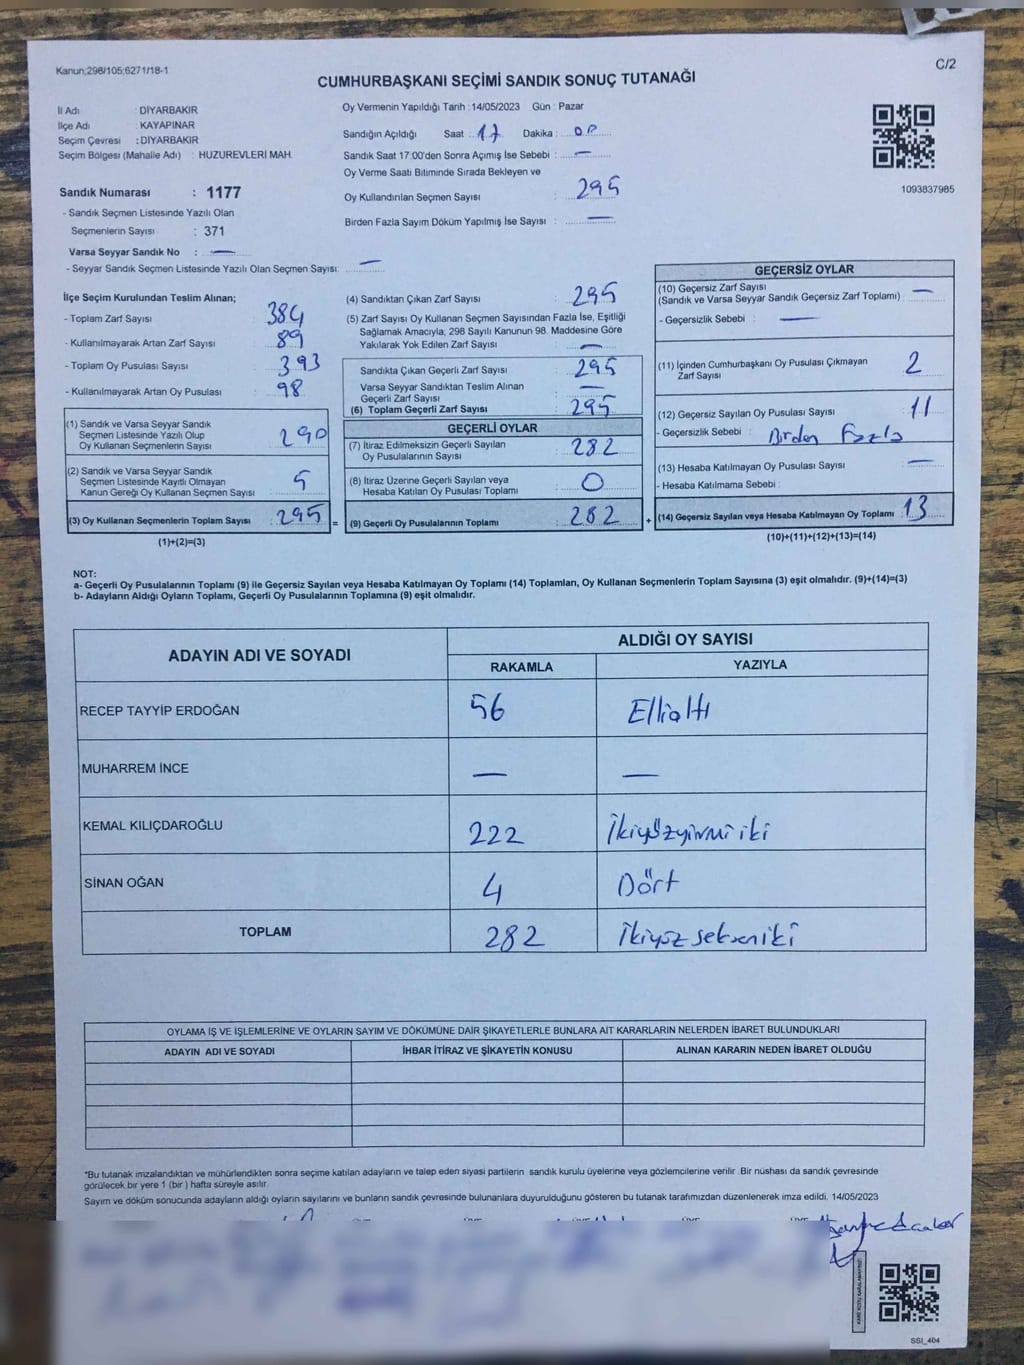 Kanun;298/105;6271/18-1
C/2
CUMHURBAŞKANI SEÇİMİ SANDIK SONUÇ TUTANAĞI
İl Adı : DİYARBAKIR
İlçe Adı : KAYAPINAR
Seçim Çevresi : DİYARBAKIR
Seçim Bölgesi (Mahalle Adı) : HUZUREVLERİ MAH.
Sandık Numarası : 1177
- Sandık Seçmen Listesinde Yazılı Olan
Seçmenlerin Sayısı : 371
Varsa Seyyar Sandık No : —
- Seyyar Sandık Seçmen Listesinde Yazılı Olan Seçmen Sayısı: —
Oy Vermenin Yapıldığı Tarih :14/05/2023 Gün : Pazar
Sandığın Açıldığı Saat : 17 Dakika :
Sandık Saat 17:00'den Sonra Açımış İse Sebebi : —
Oy Verme Saati Bitiminde Sırada Bekleyen ve
Oy Kullandırılan Seçmen Sayısı : 295
Birden Fazla Sayım Döküm Yapılmış İse Sayısı : —
1093837985
İlçe Seçim Kurulundan Teslim Alınan;
- Toplam Zarf Sayısı 384
- Kullanılmayarak Artan Zarf Sayısı : 89
- Toplam Oy Pusulası Sayısı : 393
- Kullanılmayarak Artan Oy Pusulası : 98
(1) Sandık ve Varsa Seyyar Sandık
Seçmen Listesinde Yazılı Olup
Oy Kullanan Seçmenlerin Sayısı : 290
(2) Sandık ve Varsa Seyyar Sandık
Seçmen Listesinde Kayıtlı Olmayan
Kanun Gereği Oy Kullanan Seçmen Sayısı : 5
(3) Oy Kullanan Seçmenlerin Toplam Sayısı : 295 =
(1)+(2)=(3)
(4) Sandıktan Çıkan Zarf Sayısı : 295
(5) Zarf Sayısı Oy Kullanan Seçmen Sayısından Fazla İse, Eşitliği
Sağlamak Amacıyla; 298 Sayılı Kanunun 98. Maddesine Göre
Yakılarak Yok Edilen Zarf Sayısı : —
Sandıkta Çıkan Geçerli Zarf Sayısı : 295
Varsa Seyyar Sandıktan Teslim Alınan
Geçerli Zarf Sayısı : —
(6) Toplam Geçerli Zarf Sayısı : 295
GEÇERLİ OYLAR
(7) İtiraz Edilmeksizin Geçerli Sayılan
Oy Pusulalarının Sayısı : 282
(8) İtiraz Üzerine Geçerli Sayılan veya
Hesaba Katılan Oy Pusulası Toplamı : 0
(9) Geçerli Oy Pusulalarının Toplamı : 282 +
GEÇERSİZ OYLAR
(10) Geçersiz Zarf Sayısı
(Sandık ve Varsa Seyyar Sandık Geçersiz Zarf Toplamı) : —
- Geçersizlik Sebebi : —
(11) İçinden Cumhurbaşkanı Oy Pusulası Çıkmayan
Zarf Sayısı : 2
(12) Geçersiz Sayılan Oy Pusulası Sayısı : 11
- Geçersizlik Sebebi : Birden Fazla
(13) Hesaba Katılmayan Oy Pusulası Sayısı : —
- Hesaba Katılmama Sebebi :
(14) Geçersiz Sayılan veya Hesaba Katılmayan Oy Toplamı : 13
(10)+(11)+(12)+(13)=(14)
NOT:
a- Geçerli Oy Pusulalarının Toplamı (9) ile Geçersiz Sayılan veya Hesaba Katılmayan Oy Toplamı (14) Toplamları, Oy Kullanan Seçmenlerin Toplam Sayısına (3) eşit olmalıdır. (9)+(14)=(3)
b- Adayların Aldığı Oyların Toplamı, Geçerli Oy Pusulalarının Toplamına (9) eşit olmalıdır.
ADAYIN ADI VE SOYADI
ALDIĞI OY SAYISI
RAKAMLA YAZIYLA
RECEP TAYYİP ERDOĞAN 56 Ellialtı
MUHARREM İNCE — —
KEMAL KILIÇDAROĞLU 222 İkiyüzyirmi iki
SİNAN OĞAN 4 Dört
TOPLAM 282 İkiyüz sekseniki
OYLAMA İŞ VE İŞLEMLERİNE VE OYLARIN SAYIM VE DÖKÜMÜNE DAİR ŞİKAYETLERLE BUNLARA AİT KARARLARIN NELERDEN İBARET BULUNDUKLARI
ADAYIN ADI VE SOYADI İHBAR İTİRAZ VE ŞİKAYETİN KONUSU ALINAN KARARIN NEDEN İBARET OLDUĞU
*Bu tutanak imzalandıktan ve mühürlendikten sonra seçime katılan adayların ve talep eden siyasi partilerin sandık kurulu üyelerine veya gözlemcilerine verilir .Bir nüshası da sandık çevresinde
görülecek bir yere 1 (bir ) hafta süreyle asılır.
Sayım ve döküm sonucunda adayların aldığı oyların sayılarını ve bunların sandık çevresinde bulunanlara duyurulduğunu gösteren bu tutanak tarafımızdan düzenlenerek imza edildi. 14/05/2023
SSI_404